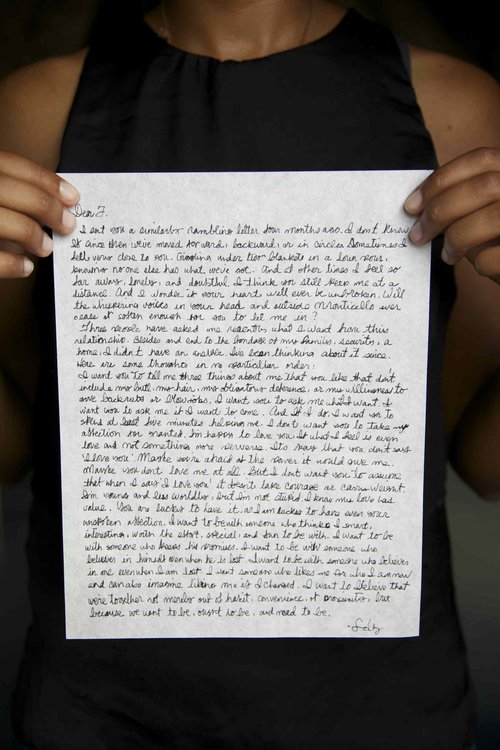 Dear F.
I sent you a similarly rambling letter four months ago. I don't know
if since then we've moved forward, backward, or in circles. Sometimes I
feel very close to you. Giggling under two blankets in a four
knowing no one else has what we've got. And at other times I feel so
far away, lonely, and doubtful. I think you still keep me at a
distance. And I wonder if your heart will ever be unbroken. Will
the whispering voices in your head and outside Monticello ever
cease or soften enough for you to let me in?
Three people have asked me recently what I want from this
relationship. Besides and end to the bondage of my family, security, a
home, I didn't have an answer. I've been thinking about it since.
Here are some thoughts in no particular order:
I want you to tell me three things about me that you like that don't
include my butt, my hair, my obligatory deference, or my willingness to
give backrubs or blowjobs. I want you to ask me what I want. I
want you to ask me if I want to come. And if I do, I want you to
spend at least five minutes helping me. I don't want you to take my
affection for granted. I'm happy to love you if what I feel is even
love and not something more perverse. It's okay that you don't say
'I love you'. Maybe you're afraid of the power it would give me.
Maybe you don't love me at all. But I don't want you to assume
that when I say 'I love you' it doesn't take courage or carry weight.
I'm young and less worldly, but I'm not stupid. I know my love has
value. You are lucky to have it, as I am lucky to have even your
unspoken affection. I want to be with someone who thinks I smart,
interesting, worth the effort, special, and fun to be with. I want to be
with someone who keeps his promises. I want to be with someone who
believes in himself even when he is lost. I want to be with someone who believes
in me even when I am lost. I want someone who likes me for who I am now
and can also imagine liking me if I changed. I want to believe that
we're together not merely out of habit, convenience, or proximity, but
because we want to be, ought to be, and need to be.